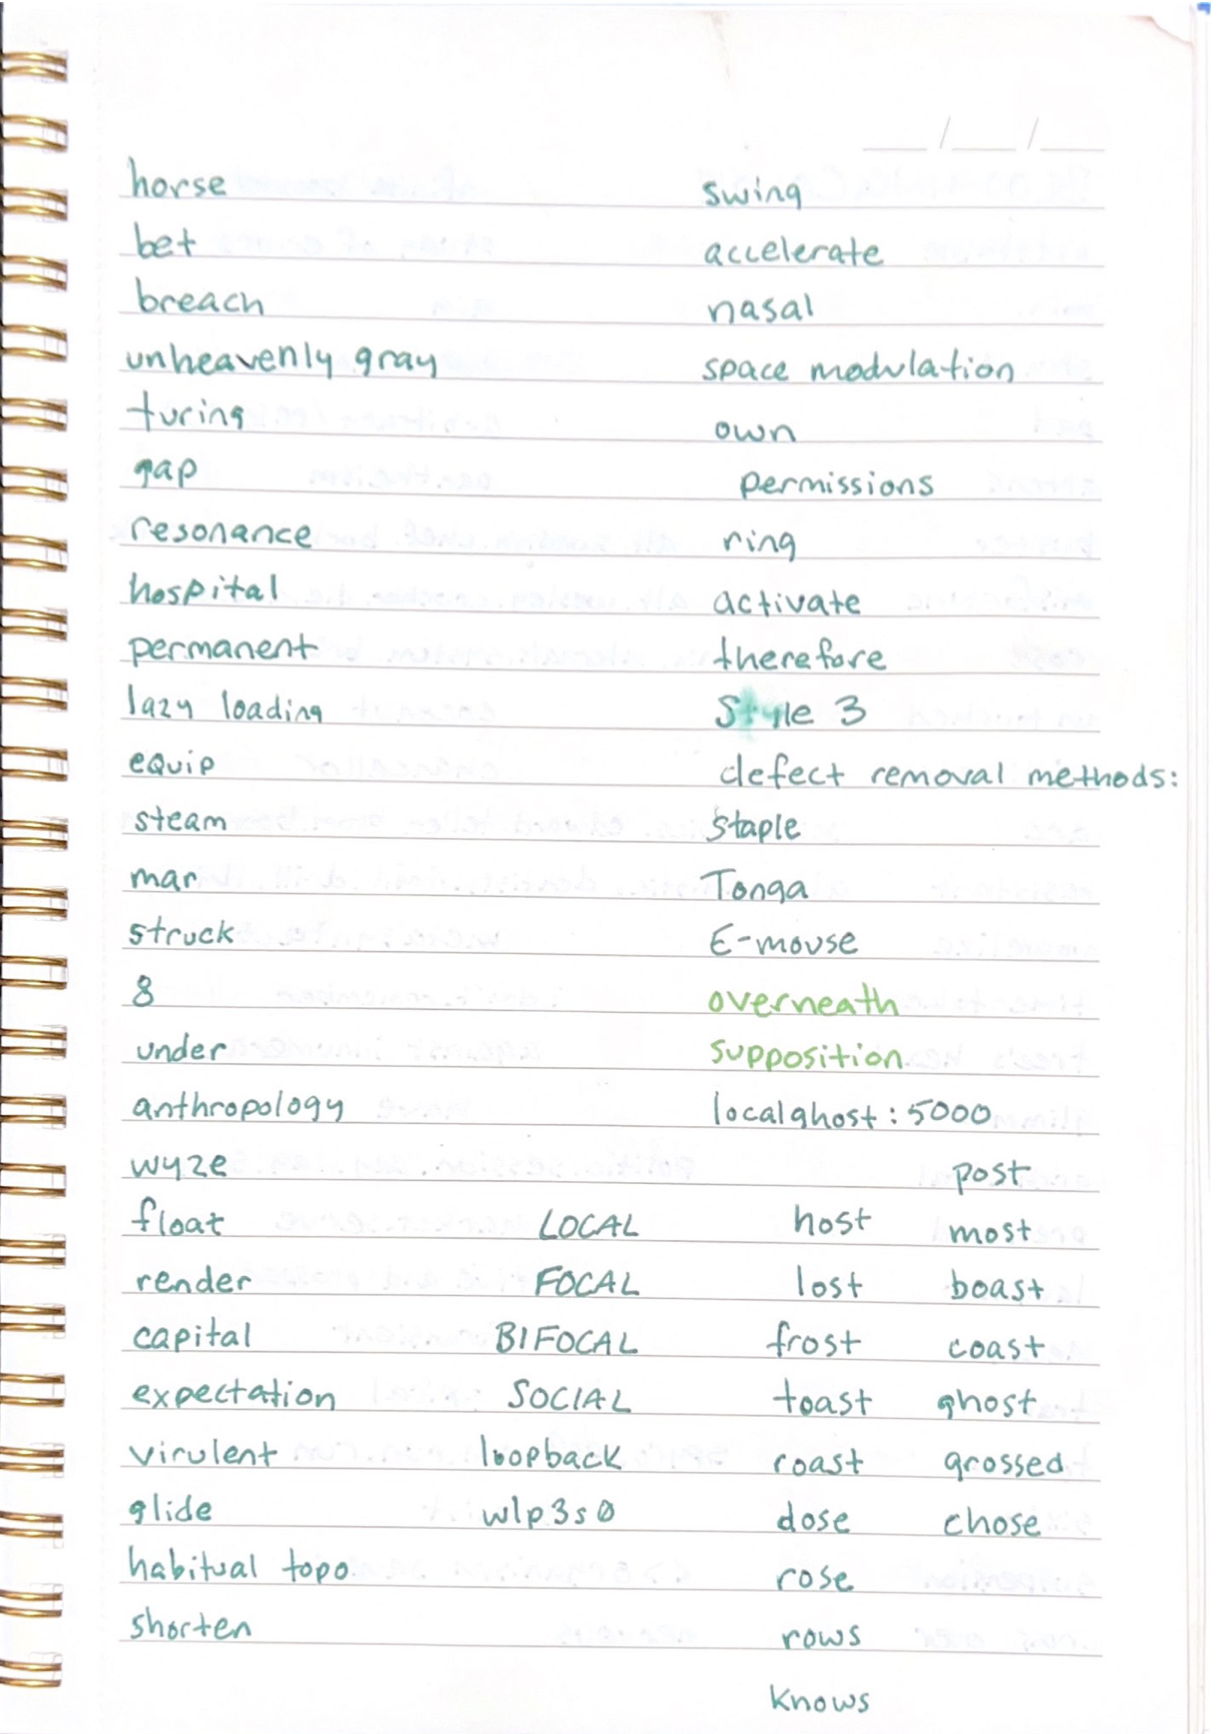 horse
bet
breach
unheavenly gray
turing
gap
resonance
hospital
permanent
lazy loading
equip
steam
mar
struck
8
under
anthropology
wyze
float
render
capital
expectation
virulent
glide
habitual topo
shorten
swing
accelerate
nasal
space modulation
own
permissions
ring
activate
therefore
Style 3
defect removal methods:
staple
Tonga
E-mouse
overneath
supposition
localghost:5000
LOCAL
FOCAL
BIFOCAL
SOCIAL
loopback
wlp3s0
host
lost
frost
toast
roast
dose
rose
rows
knows
post
most
boast
coast
ghost
grossed
chose